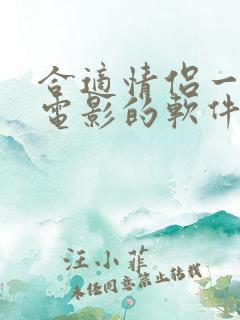 合適情侶一
電影的軟件
汪小菲
未经同意禁止转载